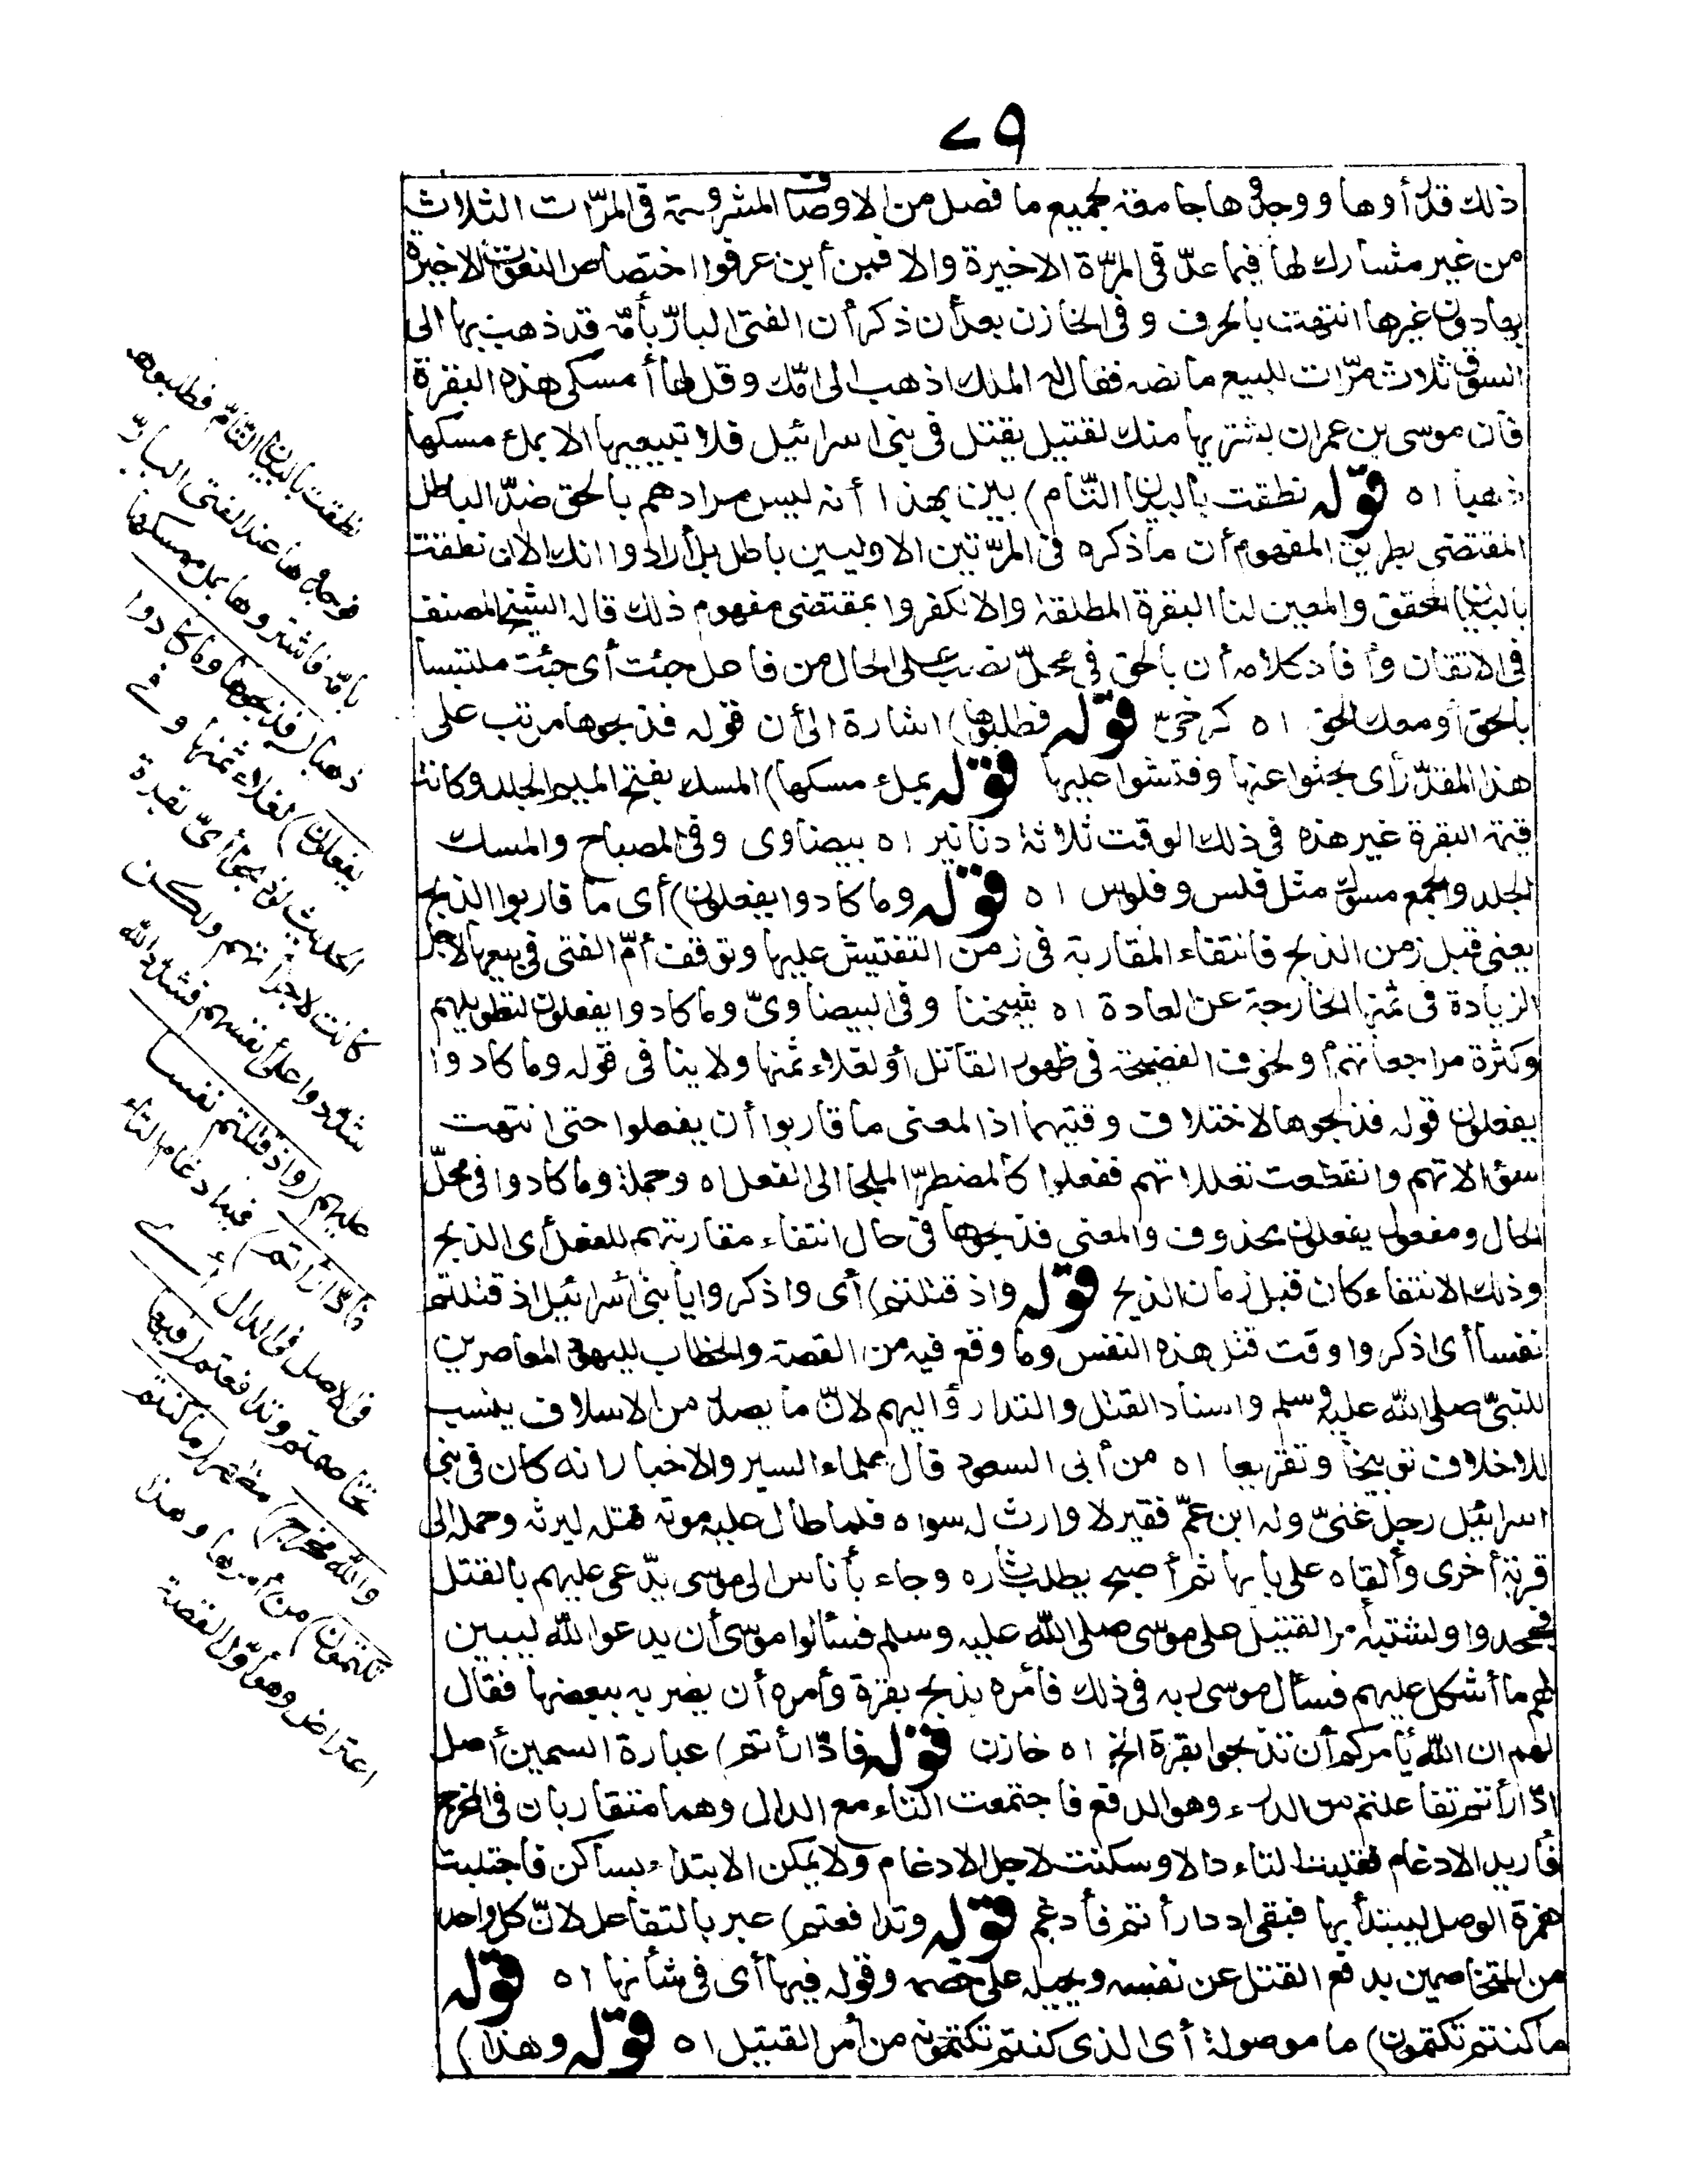 ٧٩
ذلك قد رأوها ووجدوها جامعة لجميع ما فصل من الاوصاف المشروحة فى المرّات الثلاث
من غير مشارك لها فيما عدّ فى المرّة الاخيرة والا فمن أين عرفوا اختصاص النعوت الاخيرة
بها دون غيرها انتهت بالحرف وفى الخازن بعد أن ذكر أن الفتى البارّ بأمّه قد ذهب بها الى
السوق ثلاث مرّات للبيع ما نصه فقال له الملك اذهب الى امّك وقل لها أمسكى هذه البقرة
فان موسى بن عمران يشتريها منك لقتيل يقتل فى بنى اسرائيل فلا تبيعيها الا بملء مسكها
ذهبا اه قوله نطقت بالبيان التامّ) بين بهذا أنه ليس مرادهم بالحق ضدّ الباطل
المقتضى بطريق المفهوم أن ما ذكره فى المرّتين الاوليين باطل بل أرادوا انك الآن نطقت
بالبيان المحقق والمعين لنا البقرة المطلقة والا لكفروا بمقتضى مفهوم ذلك قاله الشيخ المصنف
فى الاتقان وأفاد كلامه أن بالحق فى محلّ نصب على الحال من فاعل جئت أى جئت ملتبسا
بالحق أو معك الحق اه كرخىّ قوله فطلبوها) اشارة الى أن قوله فذبحوها مرتب على
هذا المقدّر أى بحثوا عنها وفتشوا عليها قوله بملء مسكها) المسك بفتح الميم الجلد وكانت
قيمة البقرة غير هذه فى ذلك الوقت ثلاثة دنانير اه بيضاوى وفى المصباح والمسك
الجلد والجمع مسوك مثل فلس وفلوس اه قوله وما كادوا يفعلون) أى ما قاربوا الذبح
يعنى قبل زمن الذبح فانتفاء المقاربة فى زمن التفتيش عليها وتوقف أمّ الفتى فى بيعها لاجل
الزيادة فى ثمنها الخارجة عن العادة اه شيخنا وفى البيضاوىّ وما كادوا يفعلون لتطويلهم
وكثرة مراجعاتهم أو لخوف الفضيحة فى ظهور القاتل أو لغلاء ثمنها ولا ينافى قوله وما كادوا
يفعلون قوله فذبحوها لاختلاف وقتيهما اذ المعنى ما قاربوا أن يفعلوا حتى انتهت
سؤالاتهم وانقطعت تعللاتهم ففعلوا كالمضطرّ الملجا الى الفعل اه وجملة وما كادوا فى محلّ
الحال ومفعول يفعلون محذوف والمعنى فذبحوها فى حال انتفاء مقاربتهم للفعل أى الذبح
وذلك الانتفاء كان قبل زمان الذبح قوله واذ قتلتم) أى واذكروا يا بنى أسرائيل اذ قتلتم
نفسا أى اذكروا وقت قتل هذه النفس وما وقع فيه من القصة والخطاب لليهود المعاصرين
للنبىّ صلى الله عليه وسلم واسناد القتل والتدارؤ اليهم لانّ ما يصدر من الاسلاف ينسب
للاخلاف توبيخا وتقريعا اه من أبى السعود قال علماء السير والاخبار انه كان فى بنى
اسرائيل رجل غنىّ وله ابن عمّ فقير لا وارث له سواه فلما طال عليه موته قتله ليرثه وحمله الى
قرية أخرى وألقاه على بابها ثم أصبح يطلب ثاره وجاء بأناس الى موسى يدّعى عليهم بالقتل
فجحدوا واشتبه أمر القتيل على موسى صلى الله عليه وسلم فسألوا موسى أن يدعو الله ليبين
لهم ما أشكل عليهم فسأل موسى ربه فى ذلك فأمره بذبح بقرة وأمره أن يضربه ببعضها فقال
لهم ان الله يأمركم أن تذبحوا بقرة الخ اه خازن قوله فادّارأتم) عبارة السمين أصل
ادّارأتم تفاعلتم من الدرء وهو الدفع فاجتمعت التاء مع الدال وهما متقاربان فى المخرج
فأريد الادغام فقلبت التاء دالا وسكنت لاجل الادغام ولا يمكن الابتداء بساكن فاجتلبت
همزة الوصل ليبتدأ بها فبقى اددارأتم فأدغم قوله وتدافعتم) عبر بالتفاعل لانّ كل واحد
من المتخاصمين يدفع القتل عن نفسه ويحيله على خصمه وقوله فيها أى فى شأنها اه قوله
ما كنتم تكتمون) ما موصولة أى الذى كنتم تكتمونه من أمر القتيل اه قوله وهذا)
نطقت بالبيان التامّ فطلبوها
فوجدوها عند الفتى البارّ
بأمّه فاشتروها بملء مسكها
ذهبا (فذبحوها وما كادوا
يفعلون) لغلاء ثمنها وفى
الحديث لو ذبحوا أىّ بقرة
كانت لاجزأتهم ولكن
شدّدوا على أنفسهم فشدّد الله
عليهم (واذ قتلتم نفسا
فادّارأتم) فيه ادغام التاء
فى الاصل فى الدال أى
تخاصمتم وتدافعتم (فيها
والله مخرج) مظهر (ما كنتم
تكتمون) من أمرها وهذا
اعتراض وهو أوّل القصة